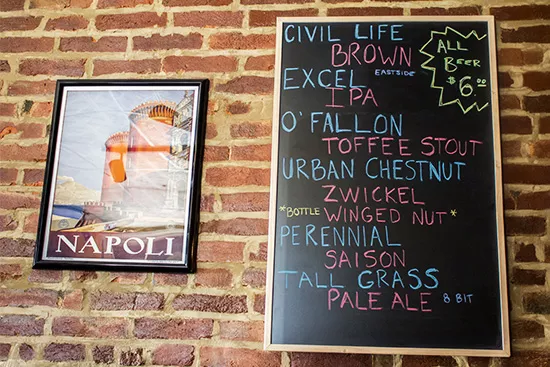 NAPOLI
CIVIL LIFE
BROWN
ALL
BEER
$6.00
EXCEL EASTSIDE
IPA
O'FALLON
TOFFEE STOUT
URBAN CHESTNUT
ZWICKEL
*BOTTLE WINGED NUT*
PERENNIAL
SAISON
TALL GRASS
PALE ALE 8 BIT